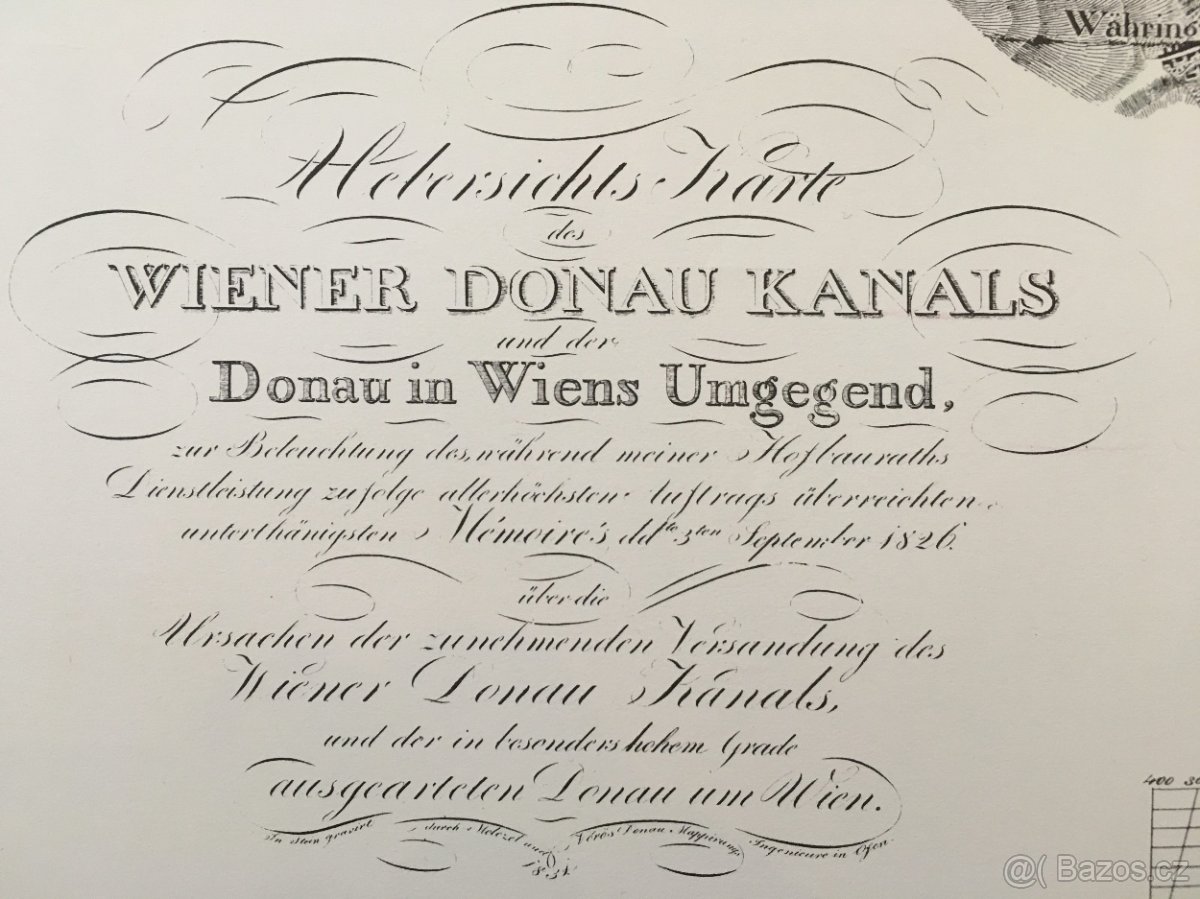 Währing
Uebersichts Karte
des
WIENER DONAU KANALS
und der
Donau in Wiens Umgegend,
zur Beleuchtung des, während meiner Hofbauraths
Dienstleistung zufolge allerhöchsten Auftrags überreichten
unterthänigsten Mémoire's ddto 3ten September 1826.
über die
Ursachen der zunehmenden Versandung des
Wiener Donau Kanals,
und der in besonders hohem Grade
ausgearteten Donau um Wien.
In Stein gravirt durch Metczel und Vörös Donau Mappirungs Ingenieure in Ofen
1834
400
@( Bazos.cz